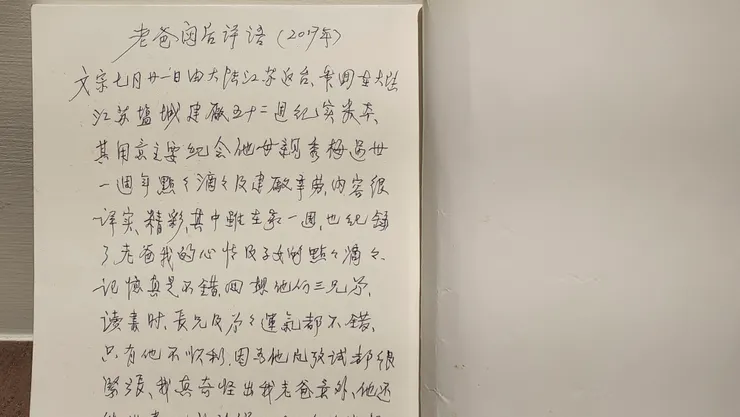 老爸閱后评语(2017年)
文宗七月廿一日由大陆江苏返台、带回在大陆
江苏盐城建廠五十二週纪实发本、
其用意主要纪念他母親秀梅過世
一週年點々滴々及建廠辛劳、内容很
详实、精彩、其中雖在最一週、也纪録
了老爸我的心情及子女的點々滴々、
记憶真是不錯、回想他们三兄弟、
读書时、長兄及弟々運氣都不錯、
只有他不顺利、因為他凡放试都很
緊張、我真奇怪出我老爸意外、他还